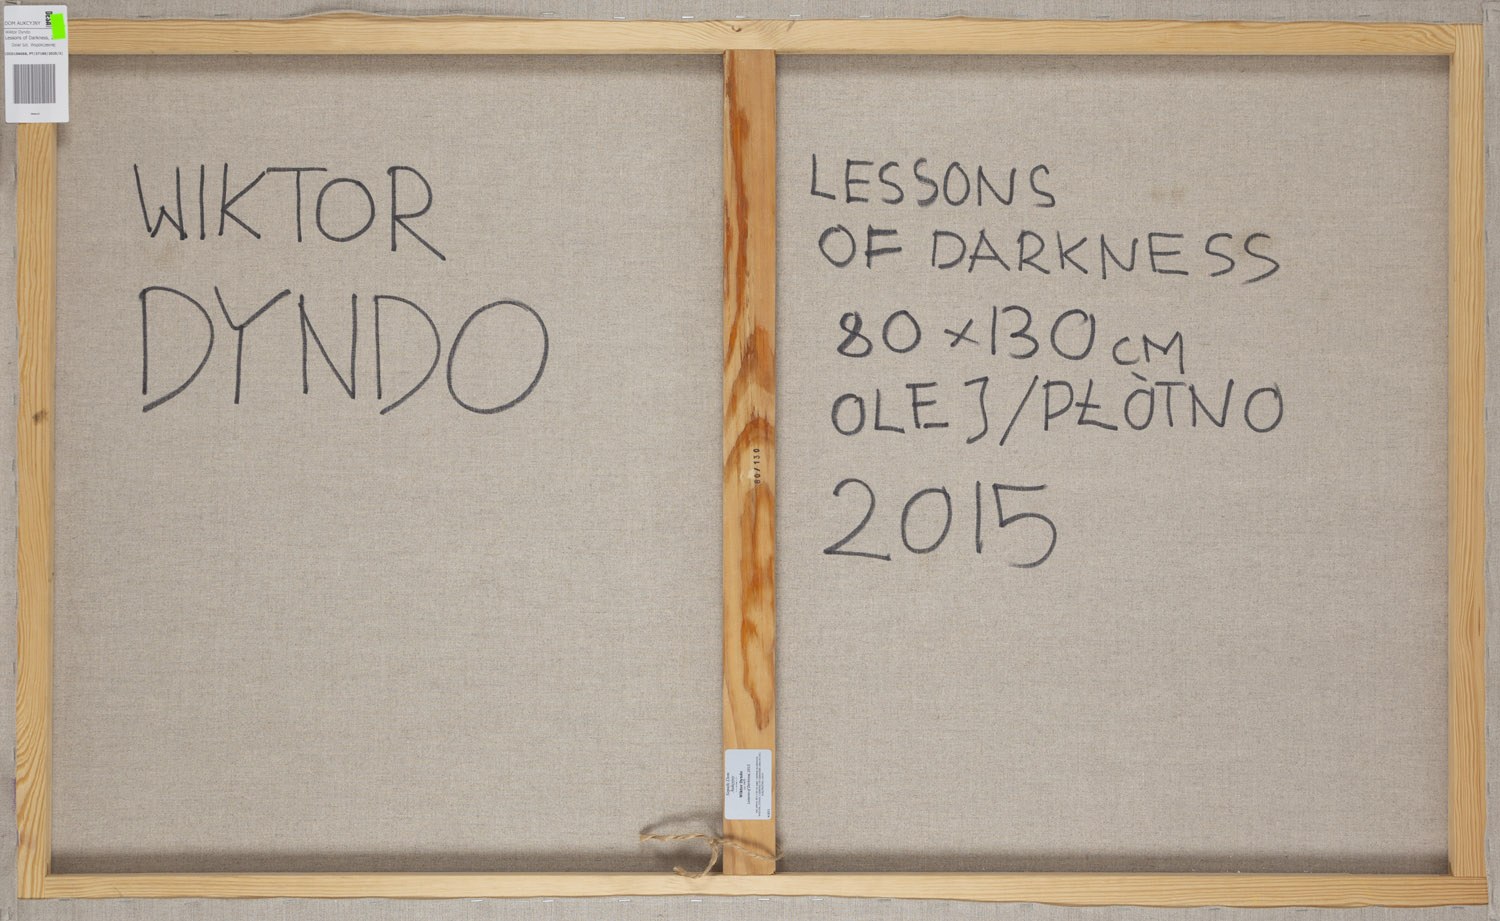 DOM AUKCYJNY
Wiktor Dyndo
Lessons of Darkness,
WIKTOR
DYNDO
LESSONS
OF DARKNESS
80 × 130 CM
OLEJ/PŁÒTNO
2015
80/130
Wiktor Dyndo